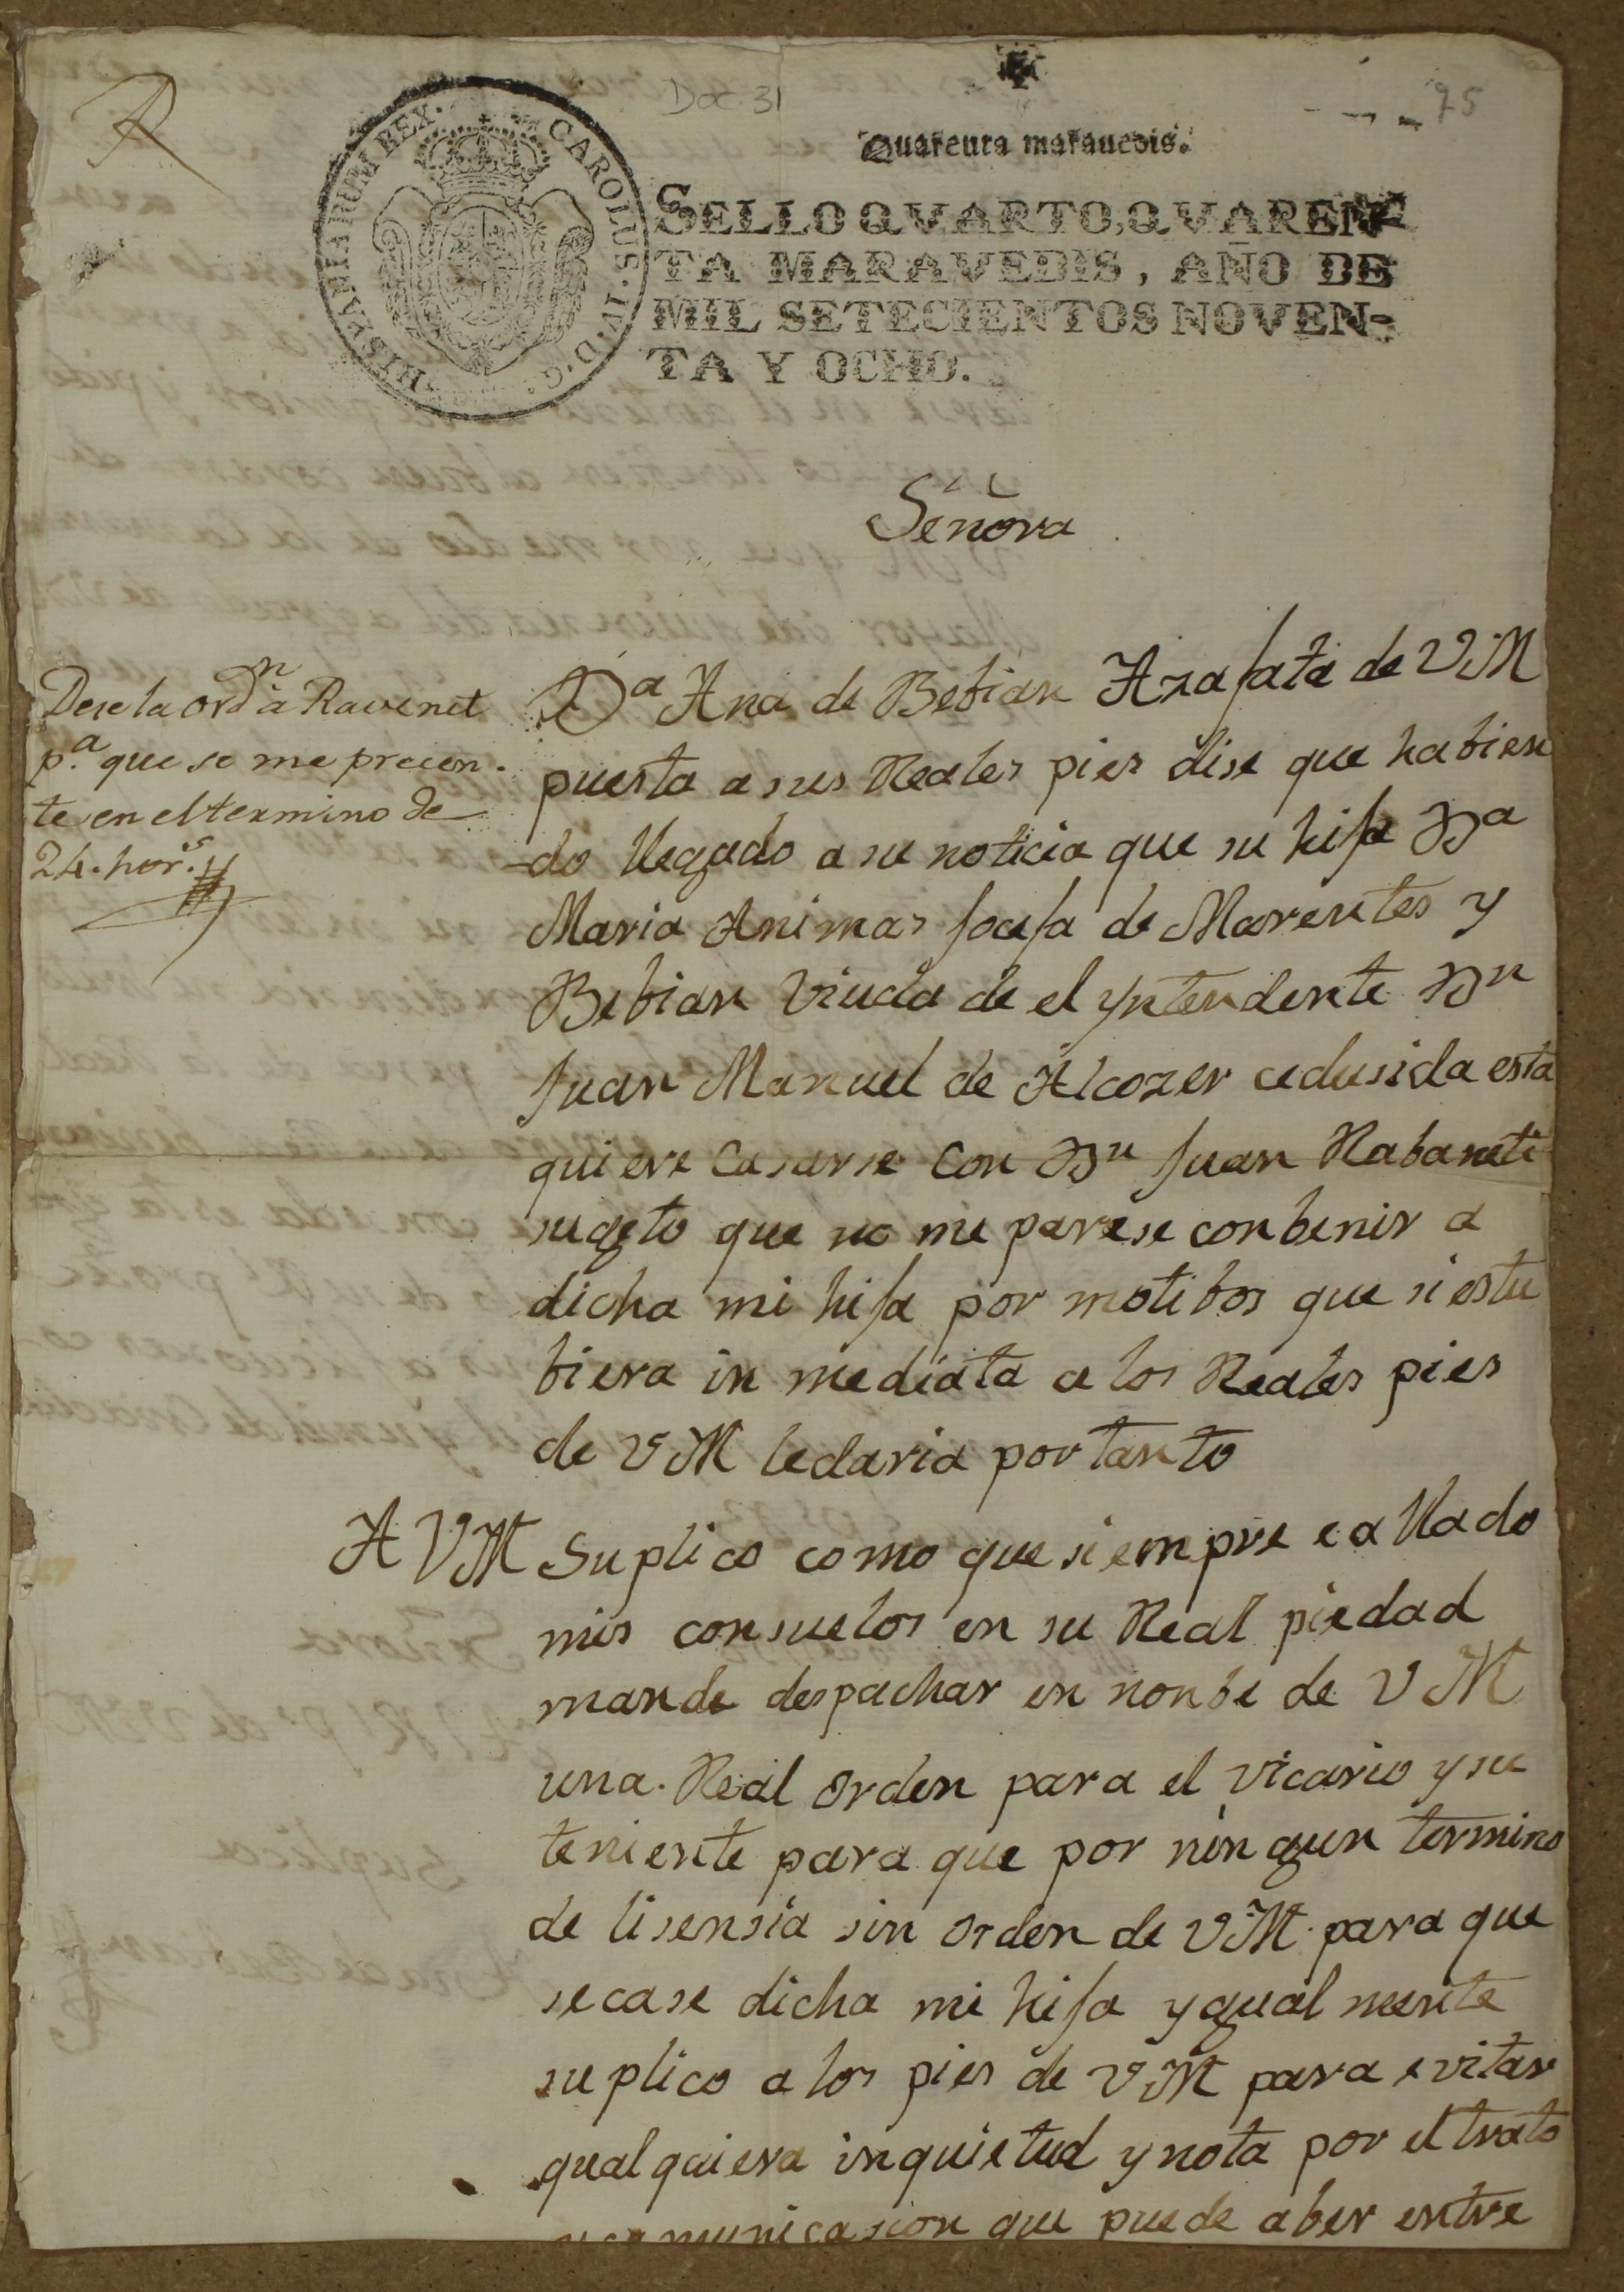 Doc 31
75
Quarenta maravedis.
HISPANIARUM REX. CAROLUS. IV. D. G.
SELLO QVARTO, QVAREN-
TA MARAVEDIS, AÑO DE
MIL SETECIENTOS NOVEN-
TA Y OCHO.
Señora
Dese la ordn à Ravenet
p.a que se me precen-
te en el termino de
24. hor.s
Da Ana de Bebian Azafata de VM
puesta a sus Reales pies dise que habien
do llegado a su noticia que su hija Da
Maria Animas Josefa de Marentes y
Bebian Viuda de el yntendente Dn
Juan Manuel de Alcozer cedusida esta
quiere Casarse Con Dn Juan Rabaneti
sugeto que no me parese conbenir a
dicha mi hija por motibos que si estu
biera in mediata a los Reales pies
de VM le daria por tanto
A VM Suplico como que siempre e allado
mis consuelos en su Real piedad
mande despachar en nonbe de VM
una Real orden para el vicario y su
teniente para que por nin gun termino
de lisensia sin orden de VM para que
se case dicha mi hija ygual mente
suplico a los pies de VM para evitar
qual quiera inquietud y nota por el trato
y comunicasion que puede aber entre